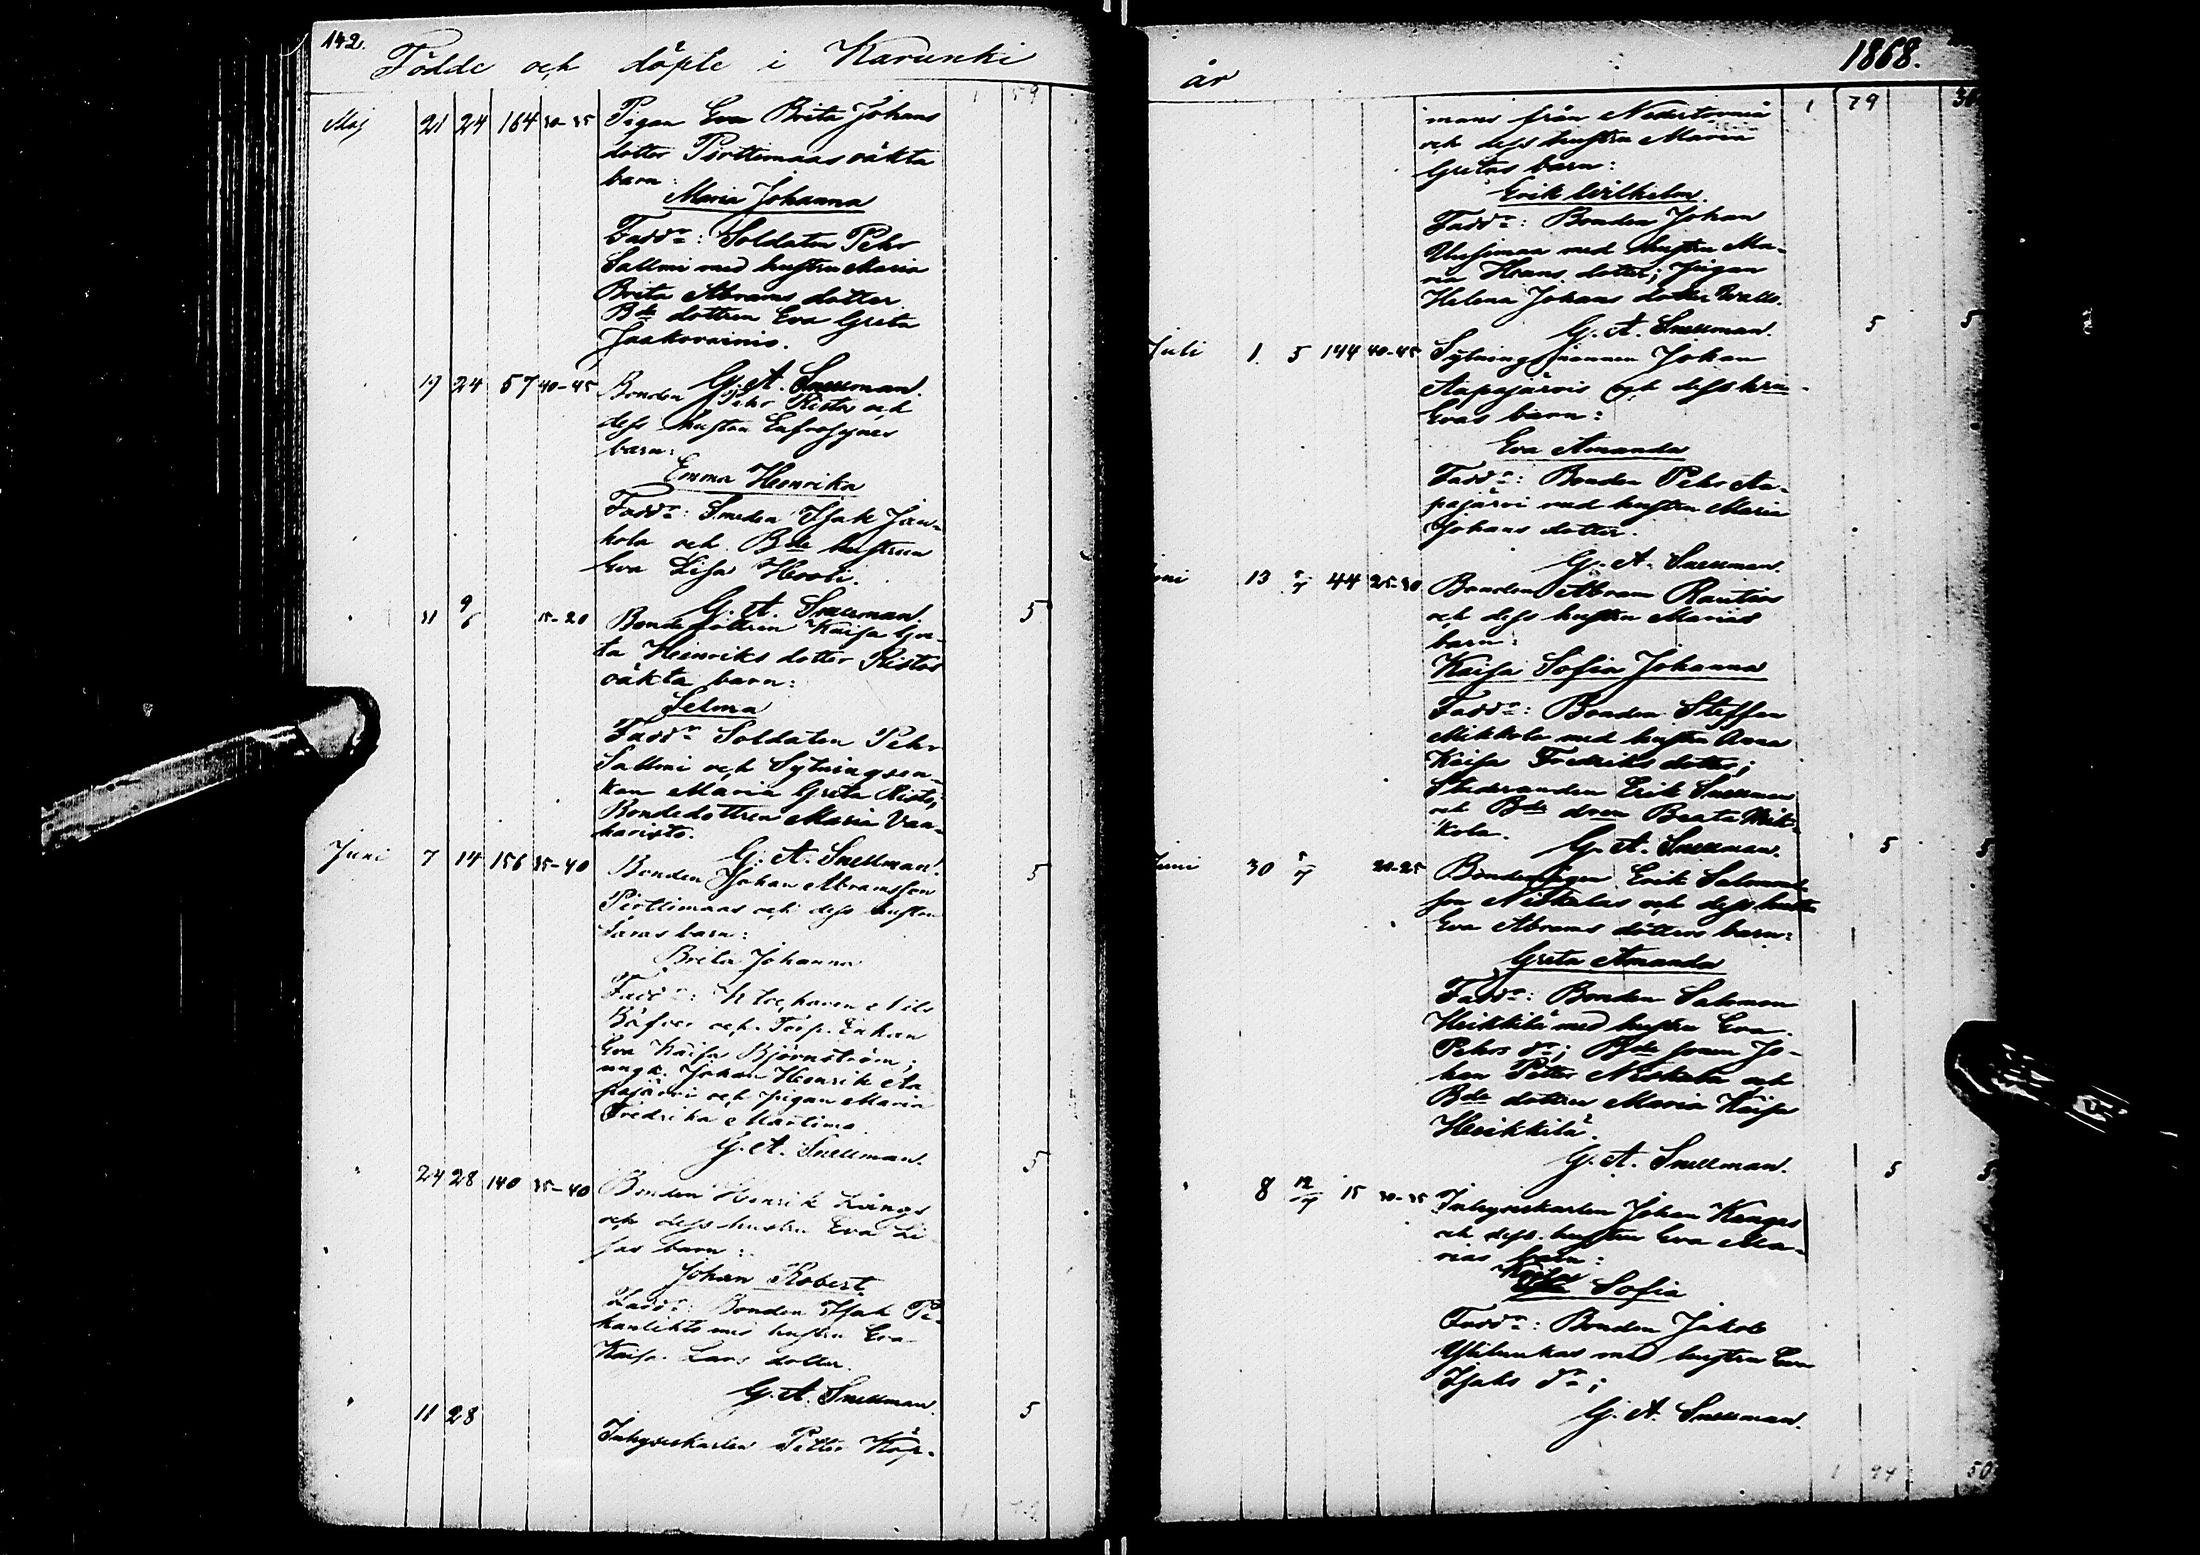 142.
Födde och döpte i Karunki
1 59
Maj 21 24 164 30-35 Pigan Eva Brita Johans
dotter Pirttimaas oäkta
barn:
Maria Johanna
Fadd:r: Soldaten Pehr
Sallmi med hustru Maria
Brita Abrams dotter
Bde dottren Eva Greta
Jaakovainio.
G. A. Snellman.
19 24 57 40-45 Bonden Pehr Ristos och
dess hustru Eufrosynes
barn:
Emma Henrika
Fadd:r: Smeden Isak Jan-
kola och Bde hustrun
Eva Lisa Hooli.
G. A. Snellman.
" 31 9/6 15-20 Bondedottren Kaisa Gre-
ta Henriks dotter Ristos
oäkta barn: 5
Selma
Fadd:r Soldaten Pehr
Sallmi och Sytningsen-
kan Maria Greta Risto;
Bondedottren Maria Van-
haristo.
G. A. Snellman.
Juni 7 14 156 35-40 Bonden Johan Abramsson 5
Pirttimaas och dess hustru
Saras barn:
Brita Johanna
Fadd:r: Nils
och Enkan
Eva Kaisa Björnström;
ungk. Johan Henrik Aa
pajärvi och pigan Maria
Fredrika Martimo.
G. A. Snellman.
" 24 28 140 35-40 Bonden Henrik Längs 5
och dess hustru Eva Li
sas barn:
Johan Robert
Fadd:r: Bonden Isak Pe-
kanlehto med hustru Eva
Kaisa Lars dotter.
G. A. Snellman.
" 11 28 5
Inhyseskarlen Petter Kop-
1868.
år
mans från Nedertorneå 1 79
och dess hustru Maria
Gretas barn:
Erik Wilhelm.
Fadd:r: Bonden Johan
Uusimaa med hustru Ma-
ria Hans dotter; pigan
Helena Johans dotter
G. A. Snellman. 5 5
Juli 1 5 144 40-45 Sytningsmannen Johan
Aapajärvis och dess hru
Evas barn:
Eva Amanda
Fadd:r: Bonden Pehr Aa-
pajärvi med hustru Maria
Johans dotter.
G. A. Snellman.
Juni 13 5/7 44 25-30 Bonden Abram Rautios
och dess hustru Marias
barn:
Kaisa Sofia Johanna
Fadd:r: Bonden Steffan
Mikkola med hustru Anna
Kaisa Fredriks dotter;
Studeranden Erik Snellman
och Bde dren Beata Mik-
kola.
G. A. Snellman. 5 5
Juni 30 5/7 20-25 Bondemågen Erik Salomons
son Niskalas och dess hustru
Eva Abrams dotters barn:
Greta Amanda
Fadd:r: Bonden Salomon
Heikkilä med hustru Eva
Pehrs dr; Bde sonen Jo-
han Petter Niskala och
Bde dottren Maria Kaisa
Heikkilä.
G. A. Snellman. 5 5
" 8 12/7 15 30-35 Inhyseskarlen Johan Kangas
och dess hustru Eva Ma-
rias barn:
Kaisa
Sofia
Fadd:r: Bonden Jakob
Yliluukas med hustru Eva
Isaks dr;
G. A. Snellman.
1 94 50